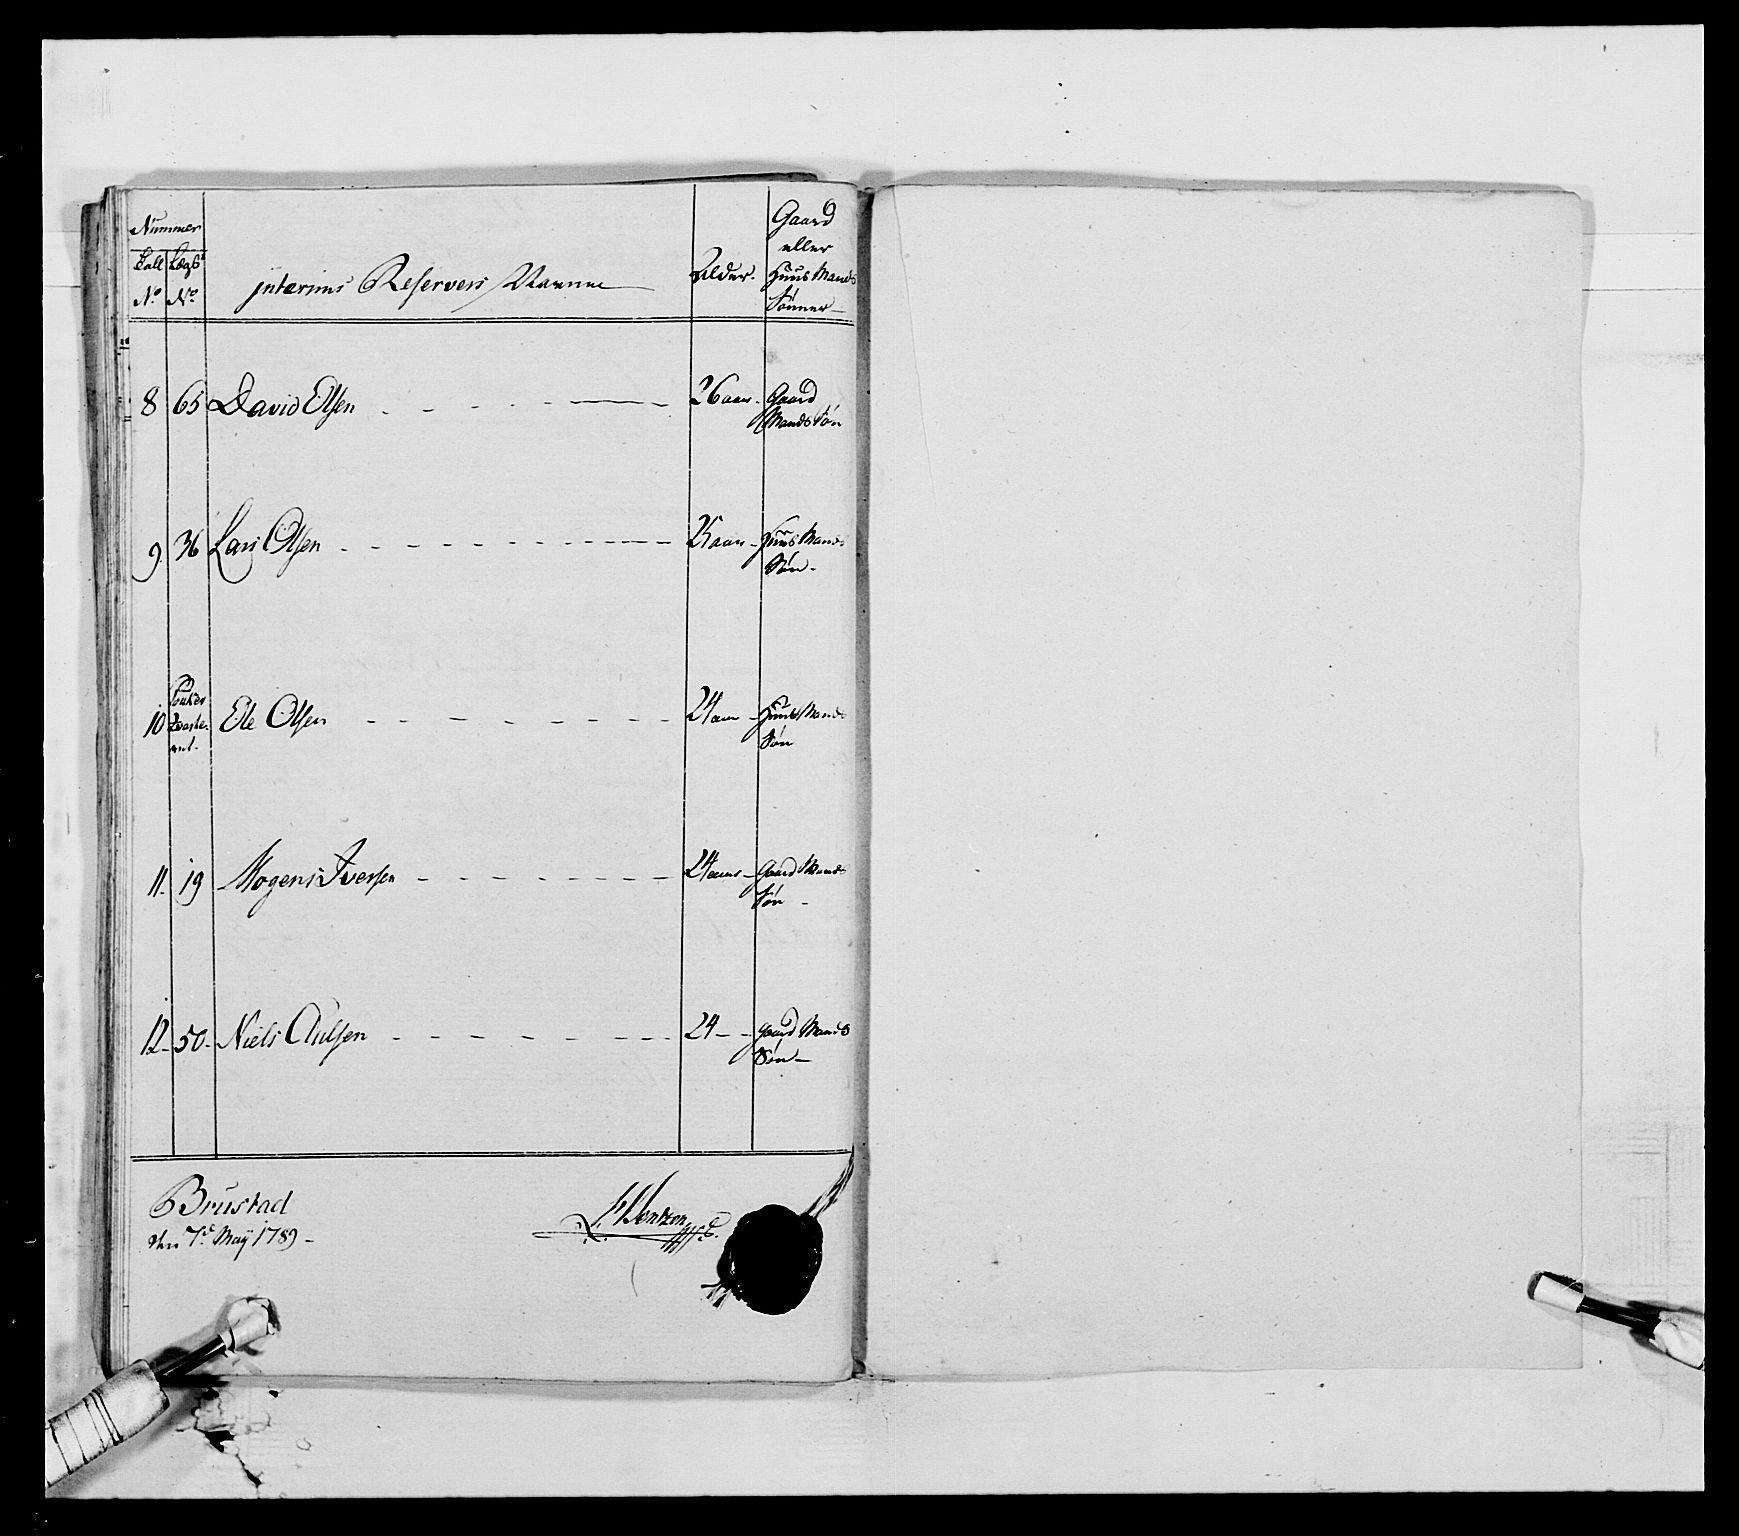 Nummer
Tall Lægs
No No
jnterims Reservers Navnne
Alder.
Gaard
eller
Huus Mands
Sønner
8 65 David Olsen 26 aar Gaard
Mands Søn
9 36 Lars Olsen 25 aar Huus Mands
Søn
10 Ole Olsen 24 aar Huus Mands
Søn
11 19 Mogens Iversen 24 aar Gaard Mands
Søn
12 50 Niels Aulsen 24 Gaard Mands
Søn
Brustad
den 7de May 1789